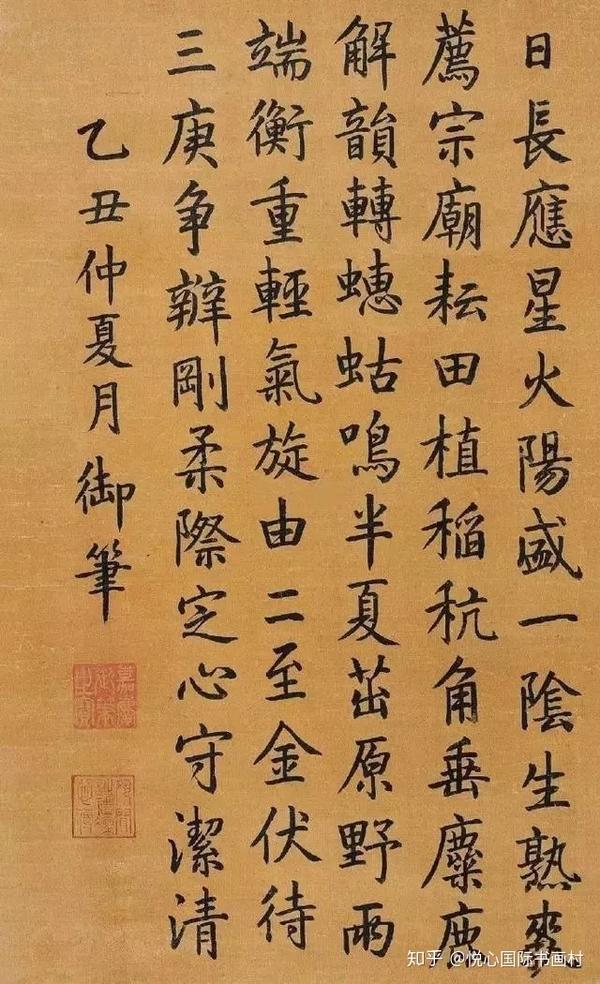 日長應星火陽盛一陰生熟麥
薦宗廟耘田植稲秔角垂麋鹿
解韻轉蟪蛄鳴半夏茁原野兩
端衡重輕氣旋由二至金伏待
三庚争辧剛柔際定心守潔清
乙丑仲夏月御筆
知乎 @悦心国际书画村